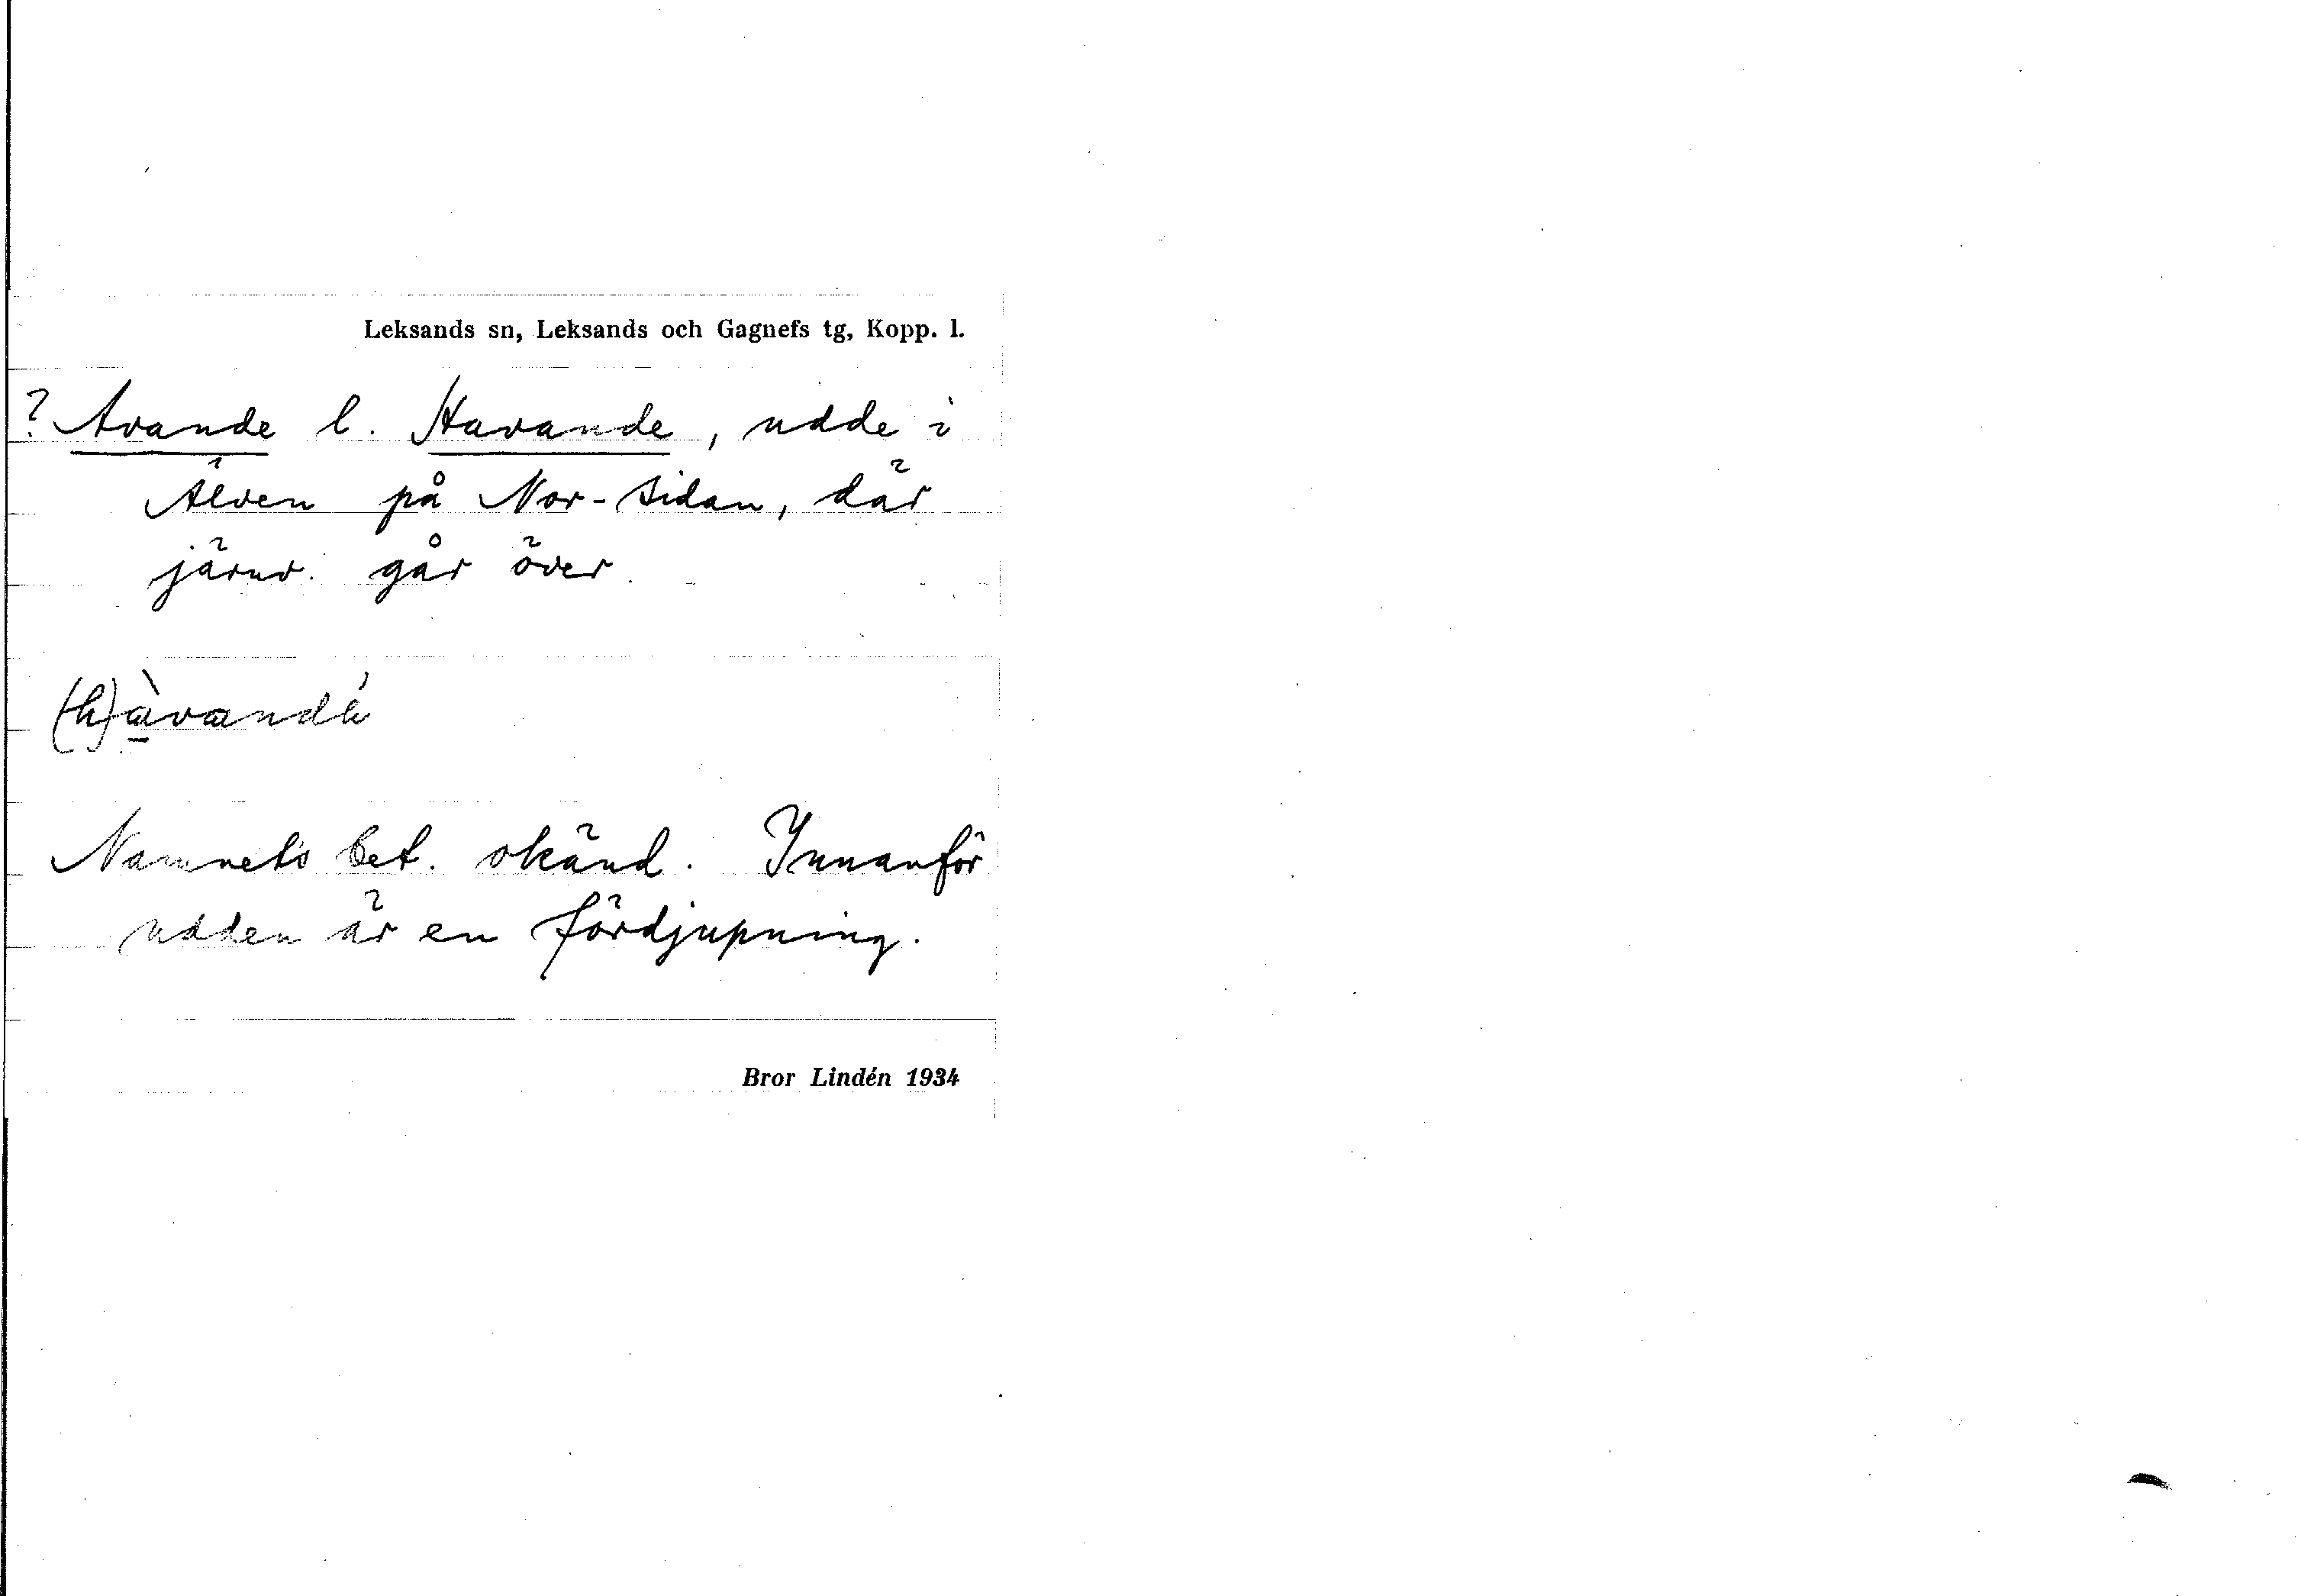 Leksands sn, Leksands och Gagnefs tg, Kopp. l.
? Avande l. Havande, udde i
Älven på Nor-sidan, där
järnv. går över.
(h)àvandè
Namnets bet. okänd. Innanför
udden är en fördjupning.
Bror Lindén 1934